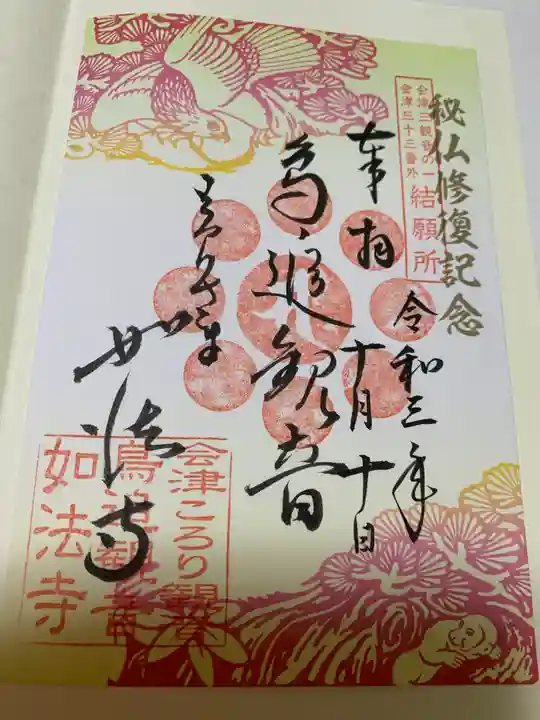 秘仏修復記念
会津三観音の一
会津三十三番外
結願所
奉拝
令和三年
十月十日
鳥追観音
如法寺
会津ころり観音
鳥追観音
如法寺